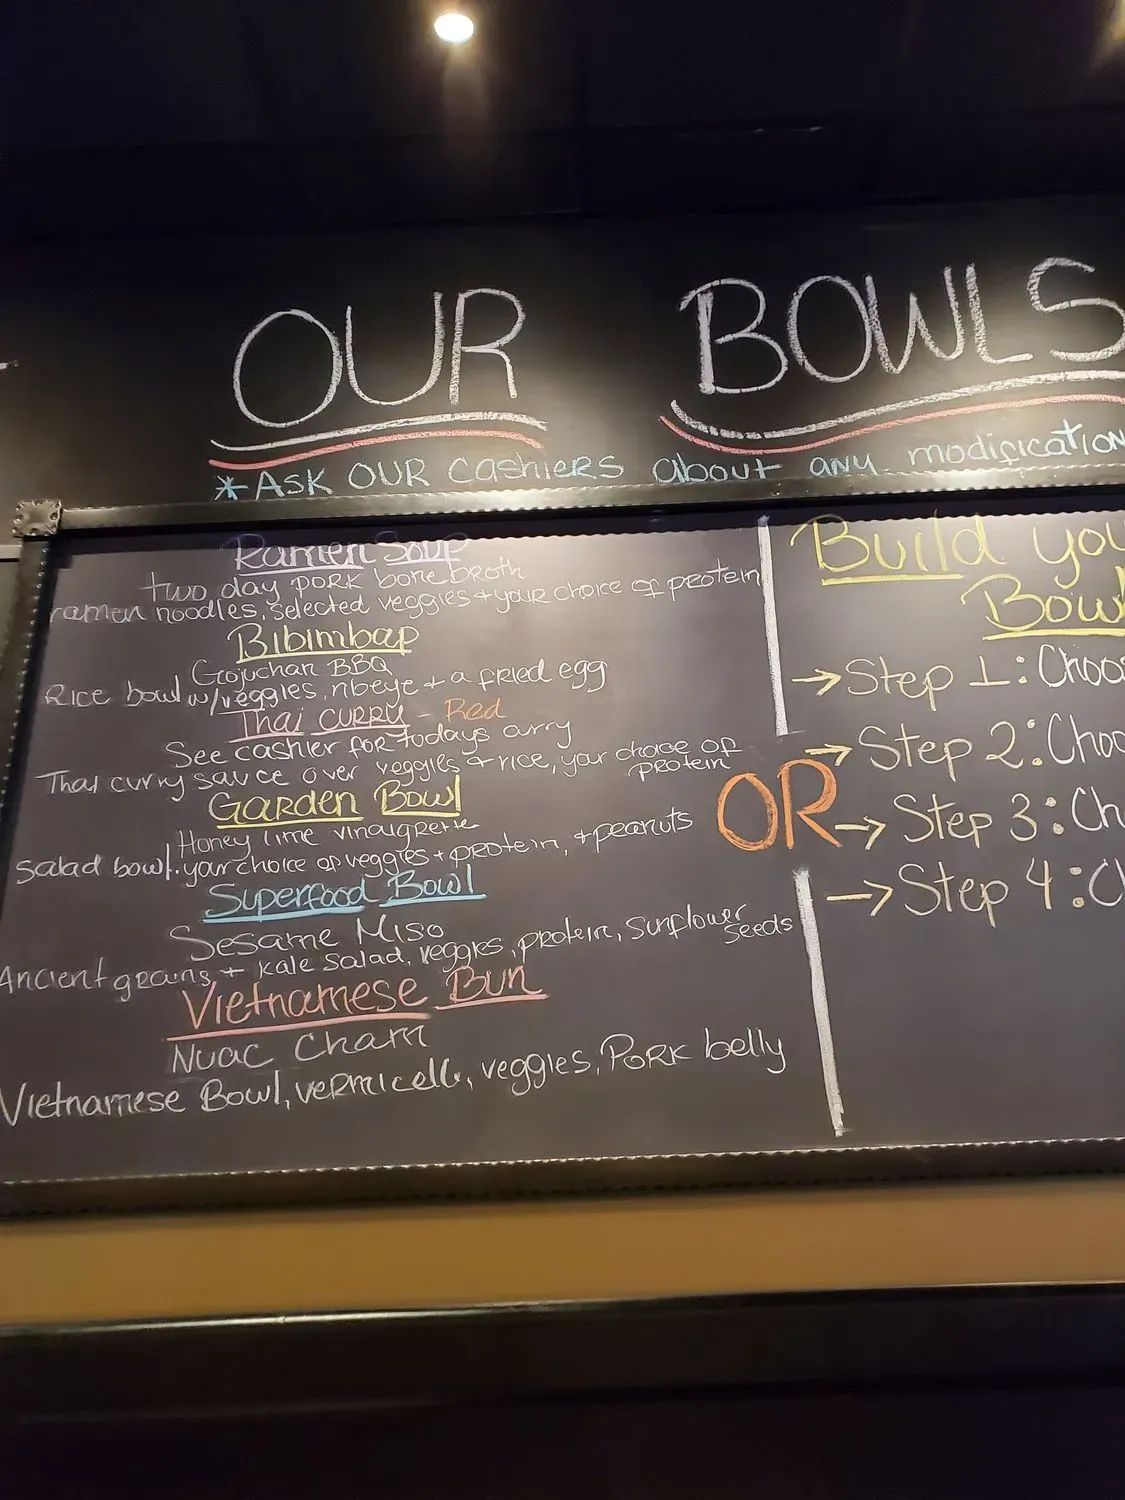 OUR BOWLS
*ASK OUR CASHIERS about any modification
Ramen Soup
two day pork bone broth
ramen noodles, selected veggies + your choice of protein
Bibimbap
Gojuchan BBQ
Rice bowl w/veggies, ribeye + a fried egg
Thai curry - Red
See cashier for todays curry
Thai curry sauce over veggies + rice, your choice of
protein
Garden Bowl
Honey lime vinaigrette
Salad bowl. your choice of veggies + protein, + peanuts
Superfood Bowl
Sesame Miso
Ancient grains + kale salad, veggies, protein, sunflower
seeds
Vietnamese Bun
Nuac Cham
Vietnamese Bowl, vermicelli, veggies, Pork belly
OR
Build you
Bowl
→ Step 1: Choo
→ Step 2: Choo
→ Step 3: Ch
→ Step 4: C